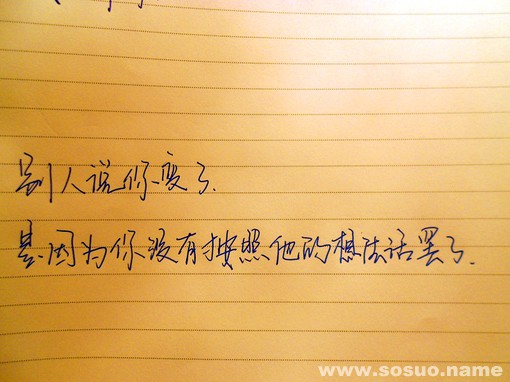 别人说你变了.
是因为你没有按照他的想法活罢了.
www.sosuo.name